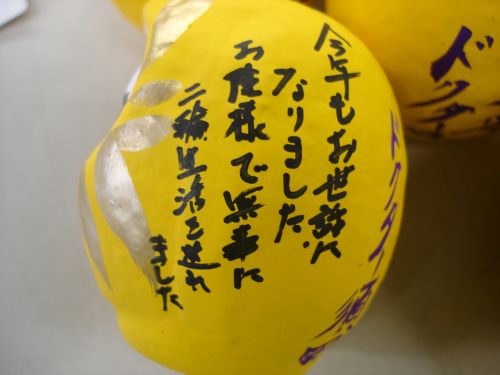 今年もお世話に
なりました。
お陰様で無事に
二輪生活を送れ
ました
ドクター須
ドクター